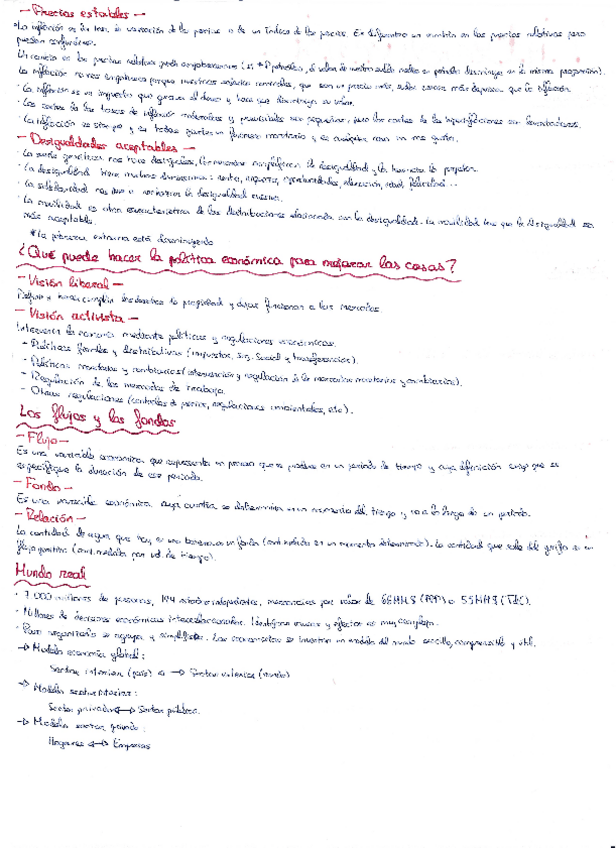 - Precios estables -
· La inflación es la tasa de variación de los precios o de un índice de los precios. Es diferente a un cambio en los precios relativos pero pueden confundirse.
Un cambio en los precios relativos puede empobrecernos
La inflación no nos empobrece porque nuestros salarios nominales, que son un precio más, suben
· La inflación es un impuesto que grava el dinero y hace que disminuya su valor.
· Los costes de las tasas de inflación moderadas y previsibles son pequeños, pero los costes de las hiperinflaciones son
· La inflación es siempre y en todas partes un fenómeno monetario y
- Desigualdades aceptables -
· La suerte genética nos hace desiguales,
· La desigualdad tiene muchas dimensiones: renta, riqueza, oportunidades, educación, salud, felicidad...
· La movilidad es otra característica de las distribuciones relacionada con la desigualdad. La movilidad hace que la desigualdad sea más aceptable.
* La pobreza extrema está disminuyendo
¿Qué puede hacer la política económica para mejorar las cosas?
- Visión liberal -
Definir y hacer cumplir los derechos de propiedad y dejar funcionar a los mercados.
- Visión activista -
Intervenir la economía mediante políticas y regulaciones económicas.
- Políticas fiscales y distributivas (impuestos, seg. Social y transferencias).
- Políticas monetarias y cambiarias (intervención y regulación de los mercados monetarios y cambiarios).
- Regulación de los mercados de trabajo.
- Otras regulaciones (controles de precios, regulaciones ambientales, etc).
Los flujos y los fondos
- Flujo -
Es una variable económica que representa un proceso que se produce en un periodo de tiempo y cuya definición exige que se especifique la duración de ese periodo.
- Fondo -
Es una variable económica cuya cuantía se determina en un momento del tiempo y no a lo largo de un periodo.
- Relación -
La cantidad de agua que hay en una bañera es un fondo (cant. medida en un momento determinado). La cantidad que sale del grifo es un flujo positivo (cant. medida por ud. de tiempo).
Mundo real
· 7 000 millones de personas, 194 estados independientes,
· Millones de decisiones económicas interrelacionadas. Identificar causas y efectos es muy complejo.
· Para organizarlo se agrupa y simplifica. Los economistas se inventan un modelo del mundo sencillo, comprensible y útil.
-> Modelo economía global:
Sectores interiores (país) <-> Sectores exteriores (mundo)
-> Modelo sectores interiores:
Sector privado <-> Sector público.
-> Modelo sector privado:
Hogares <-> Empresas